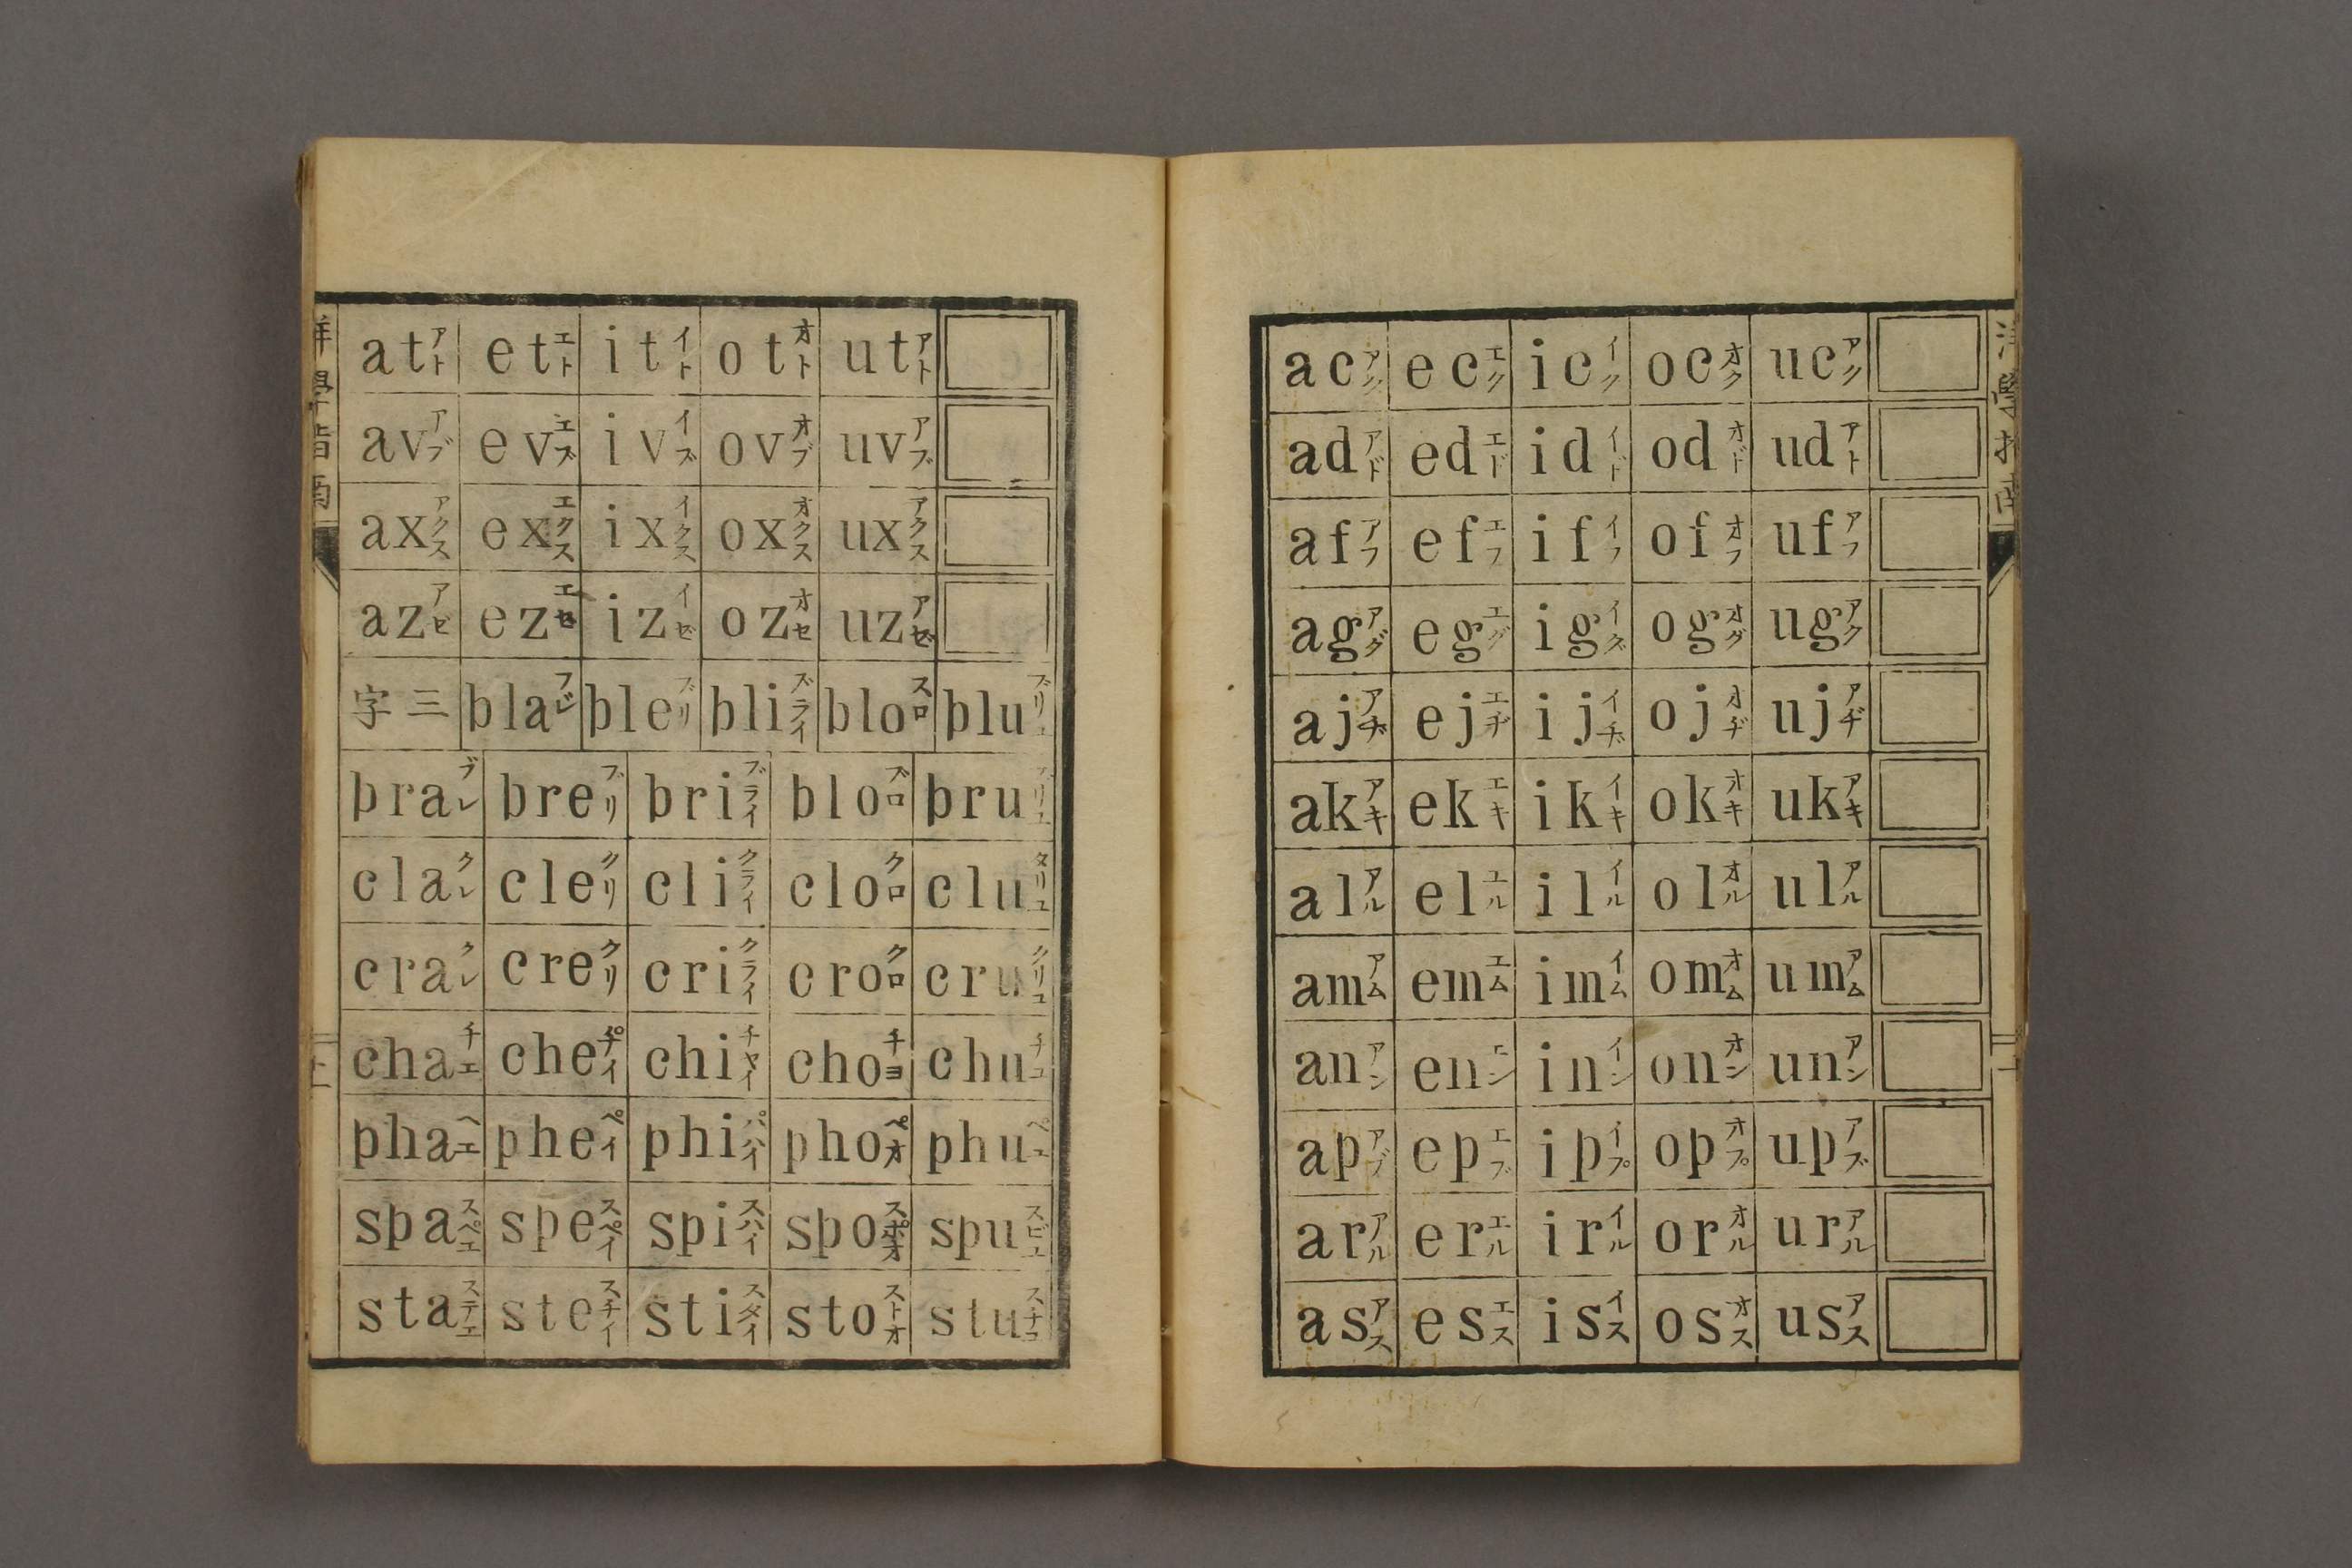 洋學指南
ac アク ec エク ic イク oc オク uc アク
ad アド ed エド id イド od オド ud アト
af アフ ef エフ if イフ of オフ uf アフ
ag アグ eg エグ ig イグ og オグ ug アク
aj アヂ ej エヂ ij イヂ oj オヂ uj アヂ
ak アキ ek エキ ik イキ ok オキ uk アキ
al アル el エル il イル ol オル ul アル
am アム em エム im イム om オム um アム
an アン en エン in イン on オン un アン
ap アブ ep エブ ip イプ op オプ up アブ
ar アル er エル ir イル or オル ur アル
as アス es エス is イス os オス us アス
洋學指南
at アト et エト it イト ot オト ut アト
av アブ ev エブ iv イブ ov オブ uv アブ
ax アクス ex エクス ix イクス ox オクス ux アクス
az アゼ ez エゼ iz イゼ oz オセ uz アゼ
三字 bla ブレ ble ブリ bli ブライ blo スロ blu ブリュ
bra ブレ bre ブリ bri ブライ blo ブロ bru ブリユ
cla クレ cle クリ cli クライ clo クロ clu タリユ
cra クレ cre クリ cri クライ cro クロ cru クリユ
cha チエ che チイ chi チヤイ cho チヨ chu チユ
pha ペエ phe ペイ phi パハイ pho ペオ phu ペユ
spa スペエ spe スペイ spi スハイ spo スポオ spu スピユ
sta ステエ ste スチイ sti スタイ sto ストオ stu スチユ